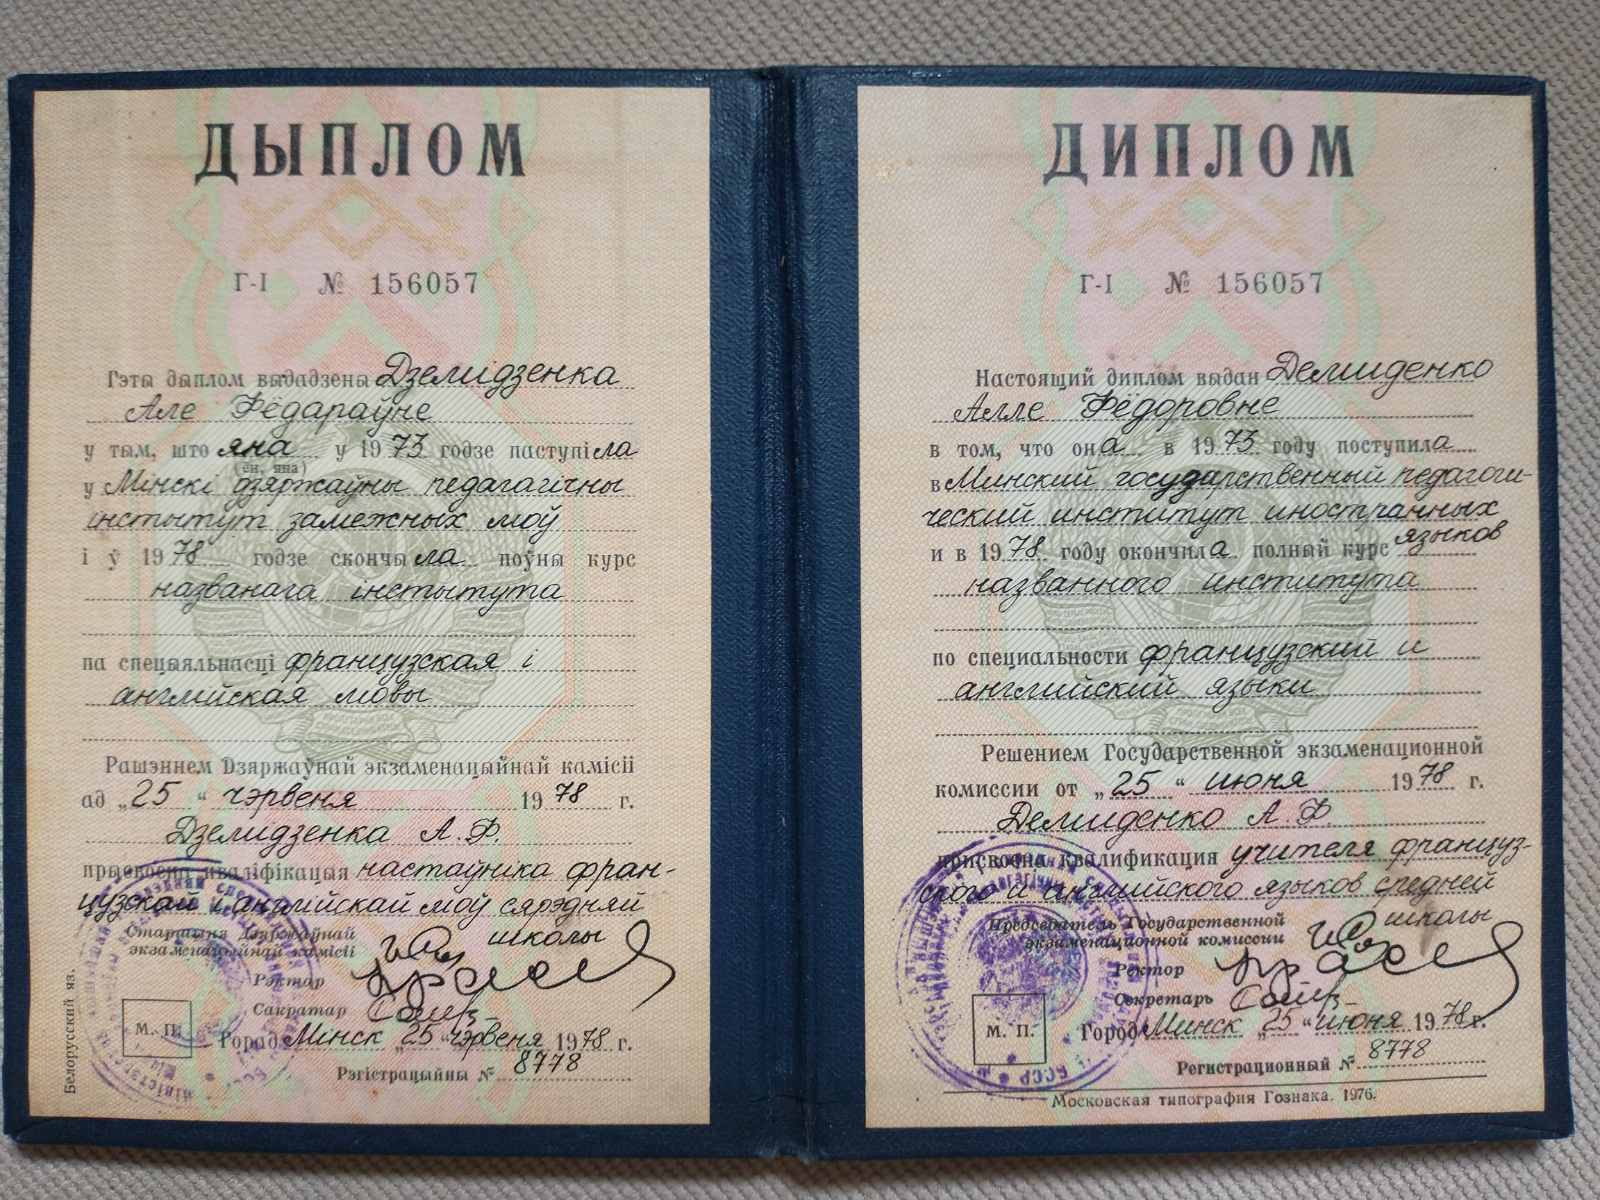 ДЫПЛОМ
Г-I № 156057
Гэты дыплом выдадзены Дземідзенка
Але Фёдараўне
у тым, што яна у 1973 годзе паступіла
(ён, яна)
у Мінскі дзяржаўны педагагічны
інстытут замежных моў
і ў 1978 годзе скончыла поўны курс
названага інстытута
па спецыяльнасці французская і
англійская мовы
Рашэннем Дзяржаўнай экзаменацыйнай камісіі
ад „25“ чэрвеня 1978 г.
Дземідзенка А. Ф.
прысвоена кваліфікацыя настаўніка фран-
цузскай і англійскай моў сярэдняй
школы
Старшыня Дзяржаўнай
экзаменацыйнай камісіі
Рэктар
Сакратар
М. П.
Горад Мінск „25“ чэрвеня 1978 г.
Рэгістрацыйны № 8778
Белорусский яз.
ДИПЛОМ
Г-I № 156057
Настоящий диплом выдан Демиденко
Алле Фёдоровне
в том, что она в 1973 году поступила
в Минский государственный педагоги-
ческий институт иностранных
языков
и в 1978 году окончила полный курс
названного института
по специальности французский и
английский языки
Решением Государственной экзаменационной
комиссии от „25“ июня 1978 г.
Демиденко А. Ф.
присвоена квалификация учителя француз-
ского и английского языков средней
школы
Председатель Государственной
экзаменационной комиссии
Ректор
Секретарь
М. П.
Город Минск „25“ июня 1978 г.
Регистрационный № 8778
Московская типография Гознака. 1976.